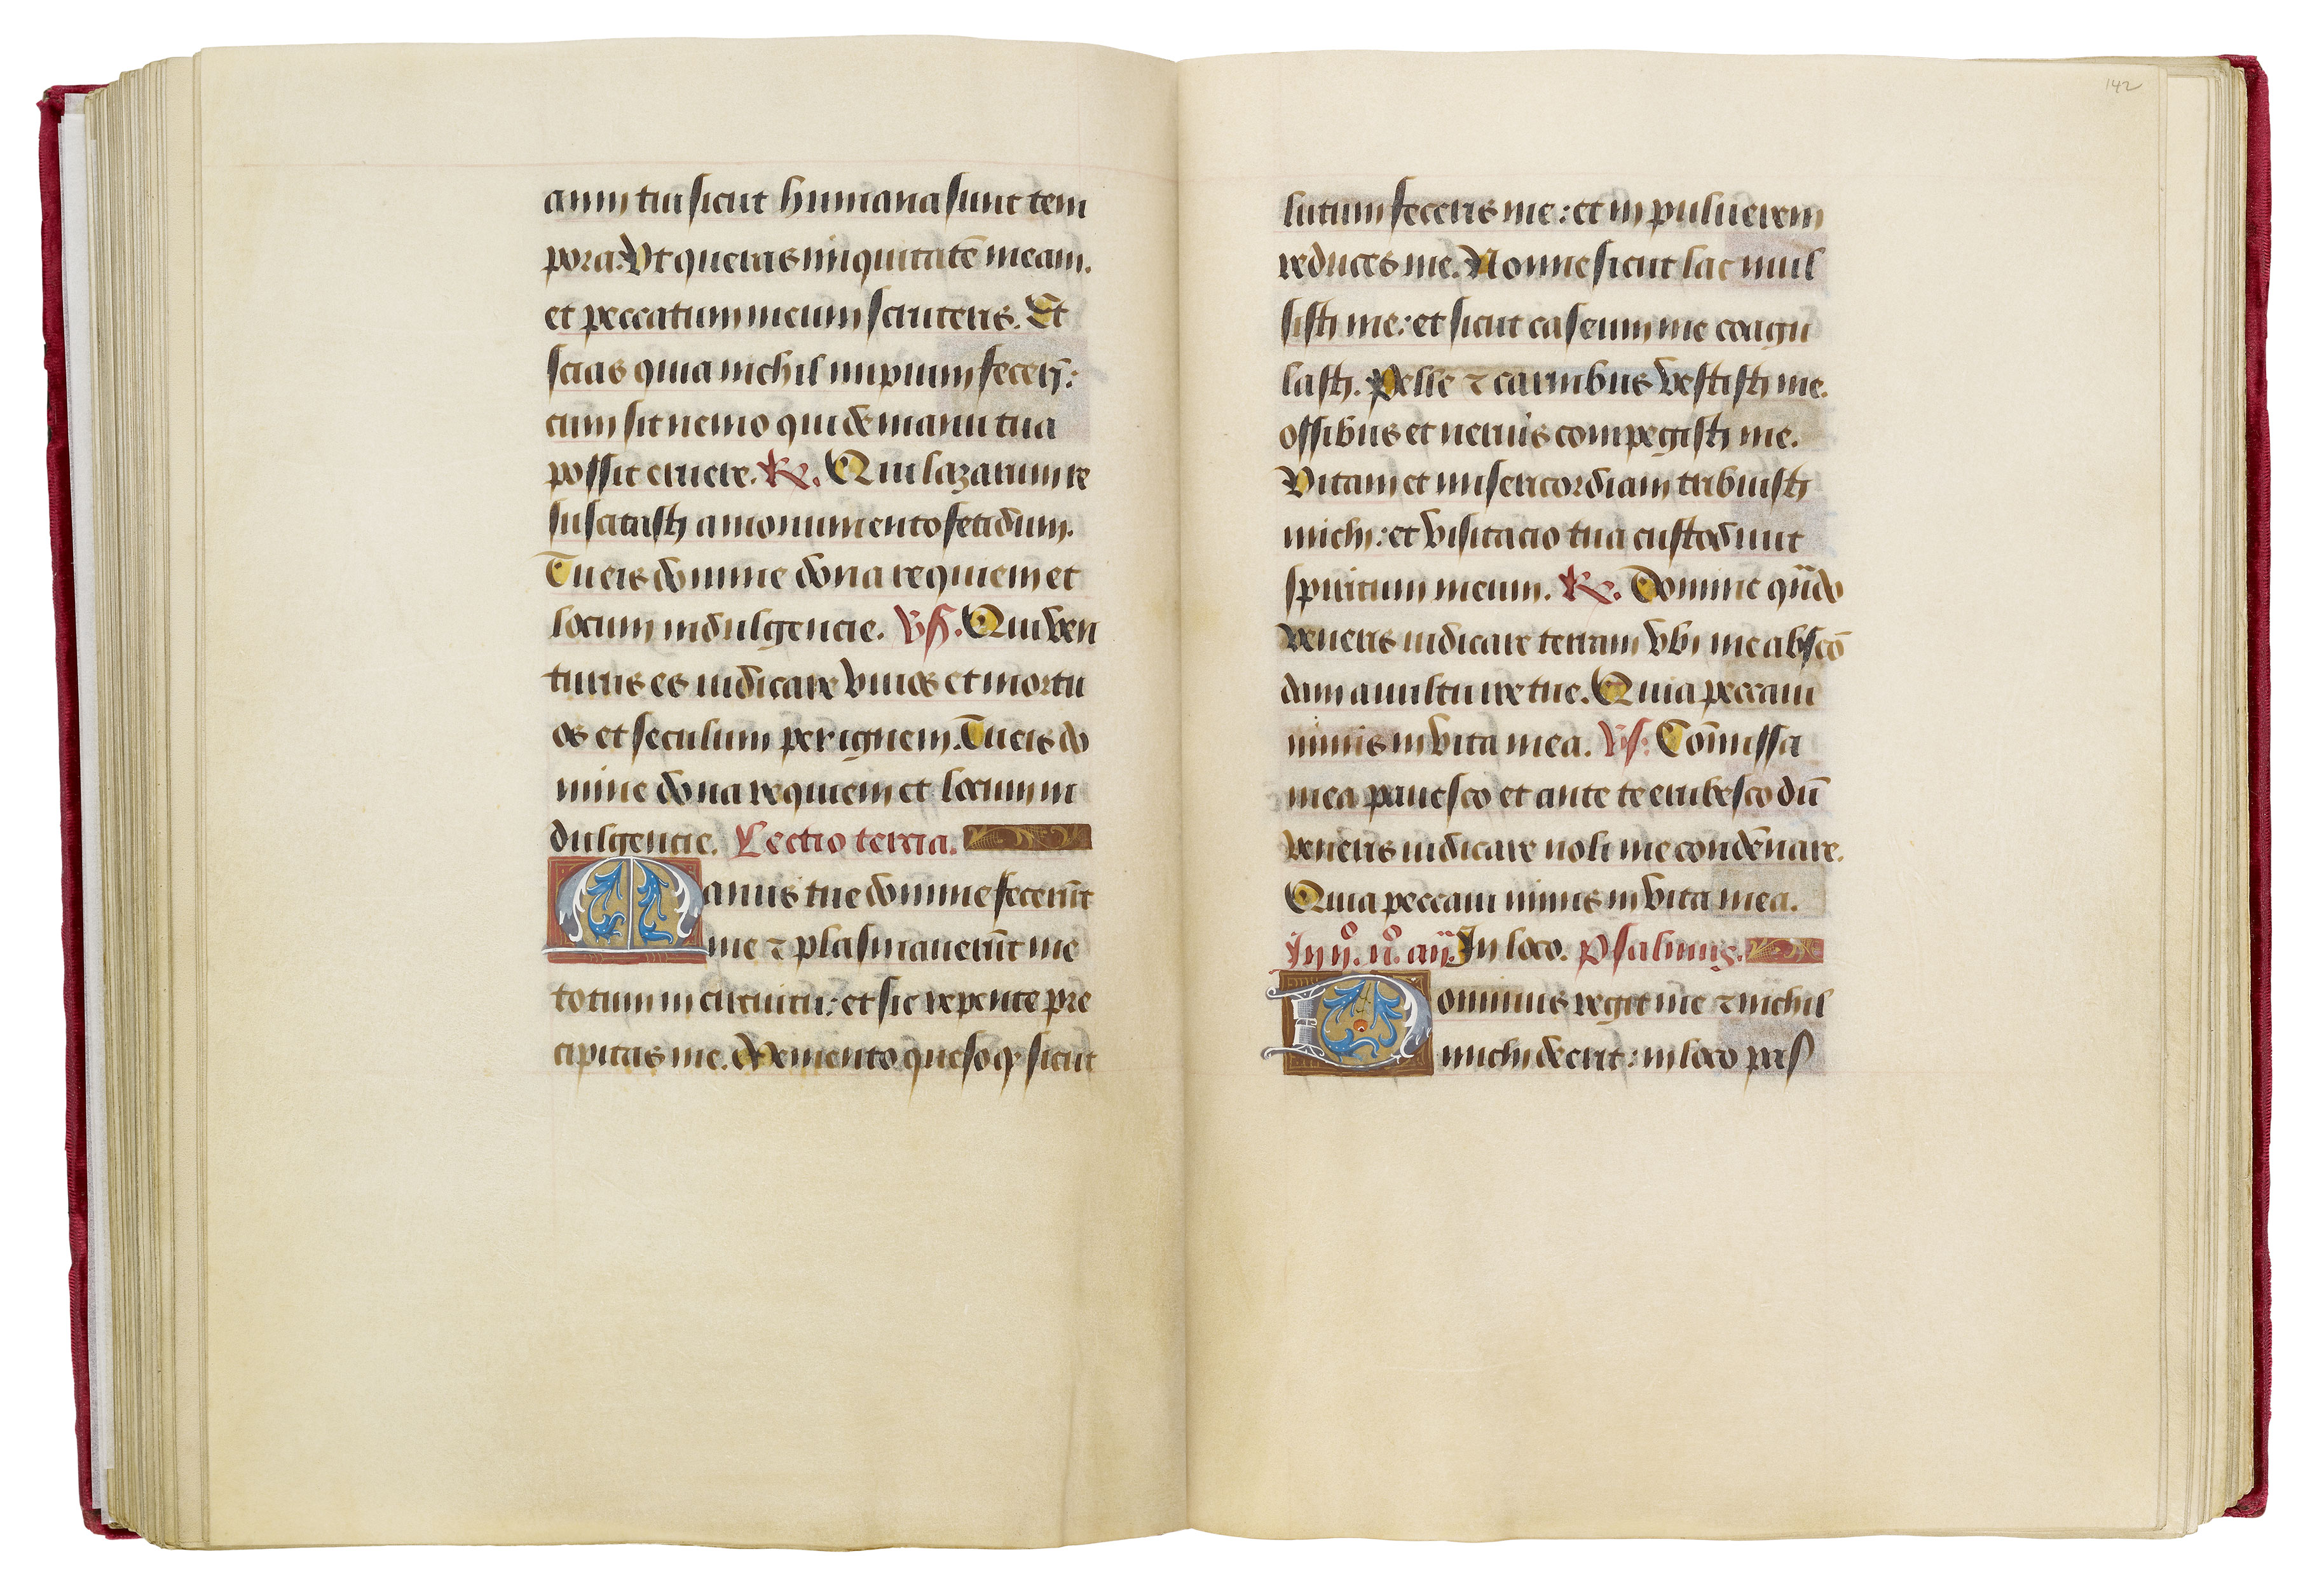 anni tui sicut humana sunt tem
pora: Vt queras iniquitatē meam.
et peccatum meum scruteris. Et
scias quia nichil impium fecerī:
cum sit nemo qui de manu tua
possit eruere. R. Qui lazarum re
suscitasti a monumento fetidum.
Tu eis domine dona requiem et
locum indulgencie. Vs. Qui ven
turus es iudicare viuos et mortu
os et seculum per ignem. Tu eis do
mine dona requiem et locum in
dulgencie. Lectio tercia.
Manus tue domine fecerūt
me ⁊ plasmauerūt me
totum in circuitu: et sic repente pre
cipitas me. Memento queso qꝫ sicut
142
lutum feceris me: et in puluerem
reduces me. Nonne sicut lac mul
sisti me: et sicut caseum me coagu
lasti. Pelle ⁊ carnibus vestisti me.
ossibus et neruis compegisti me.
Vitam et misericordiam tribuisti
michi: et visitacio tua custodiuit
spiritum meum. R. Domine qn̄do
veneris iudicare terram vbi me abscō
dam a vultu ire tue. Quia peccaui
nimis in vita mea. Vs. Cōmissa
mea pauesco et ante te erubesco dū
veneris iudicare noli me condēnare.
Quia peccaui nimis in vita mea.
In ij. nº. añ. In loco. Psalmus.
Dominus reget me ⁊ nichil
michi deerit: in loco pas